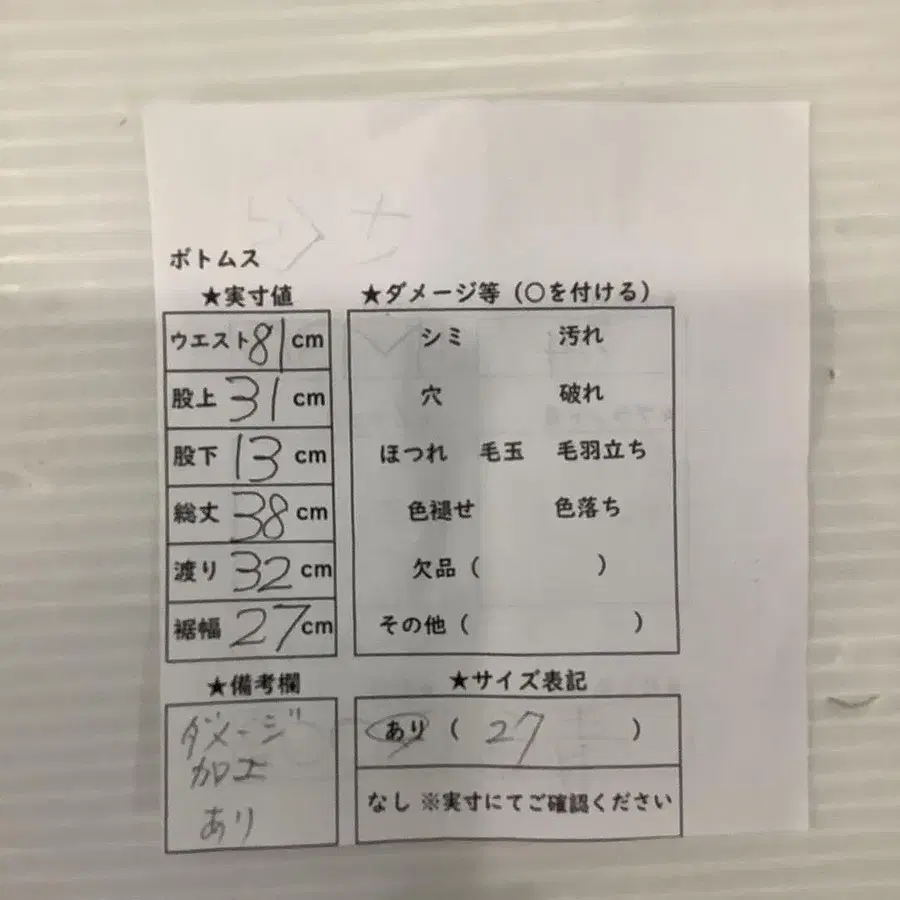 ボトムス
★実寸値
ウエスト 81 cm
股上 31 cm
股下 13 cm
総丈 38 cm
渡り 32 cm
裾幅 27 cm
★ダメージ等（〇を付ける）
シミ 汚れ
穴 破れ
ほつれ 毛玉 毛羽立ち
色褪せ 色落ち
欠品（ ）
その他（ ）
★備考欄
ダメージ
加工
あり
★サイズ表記
あり（ 27 ）
なし ※実寸にてご確認ください